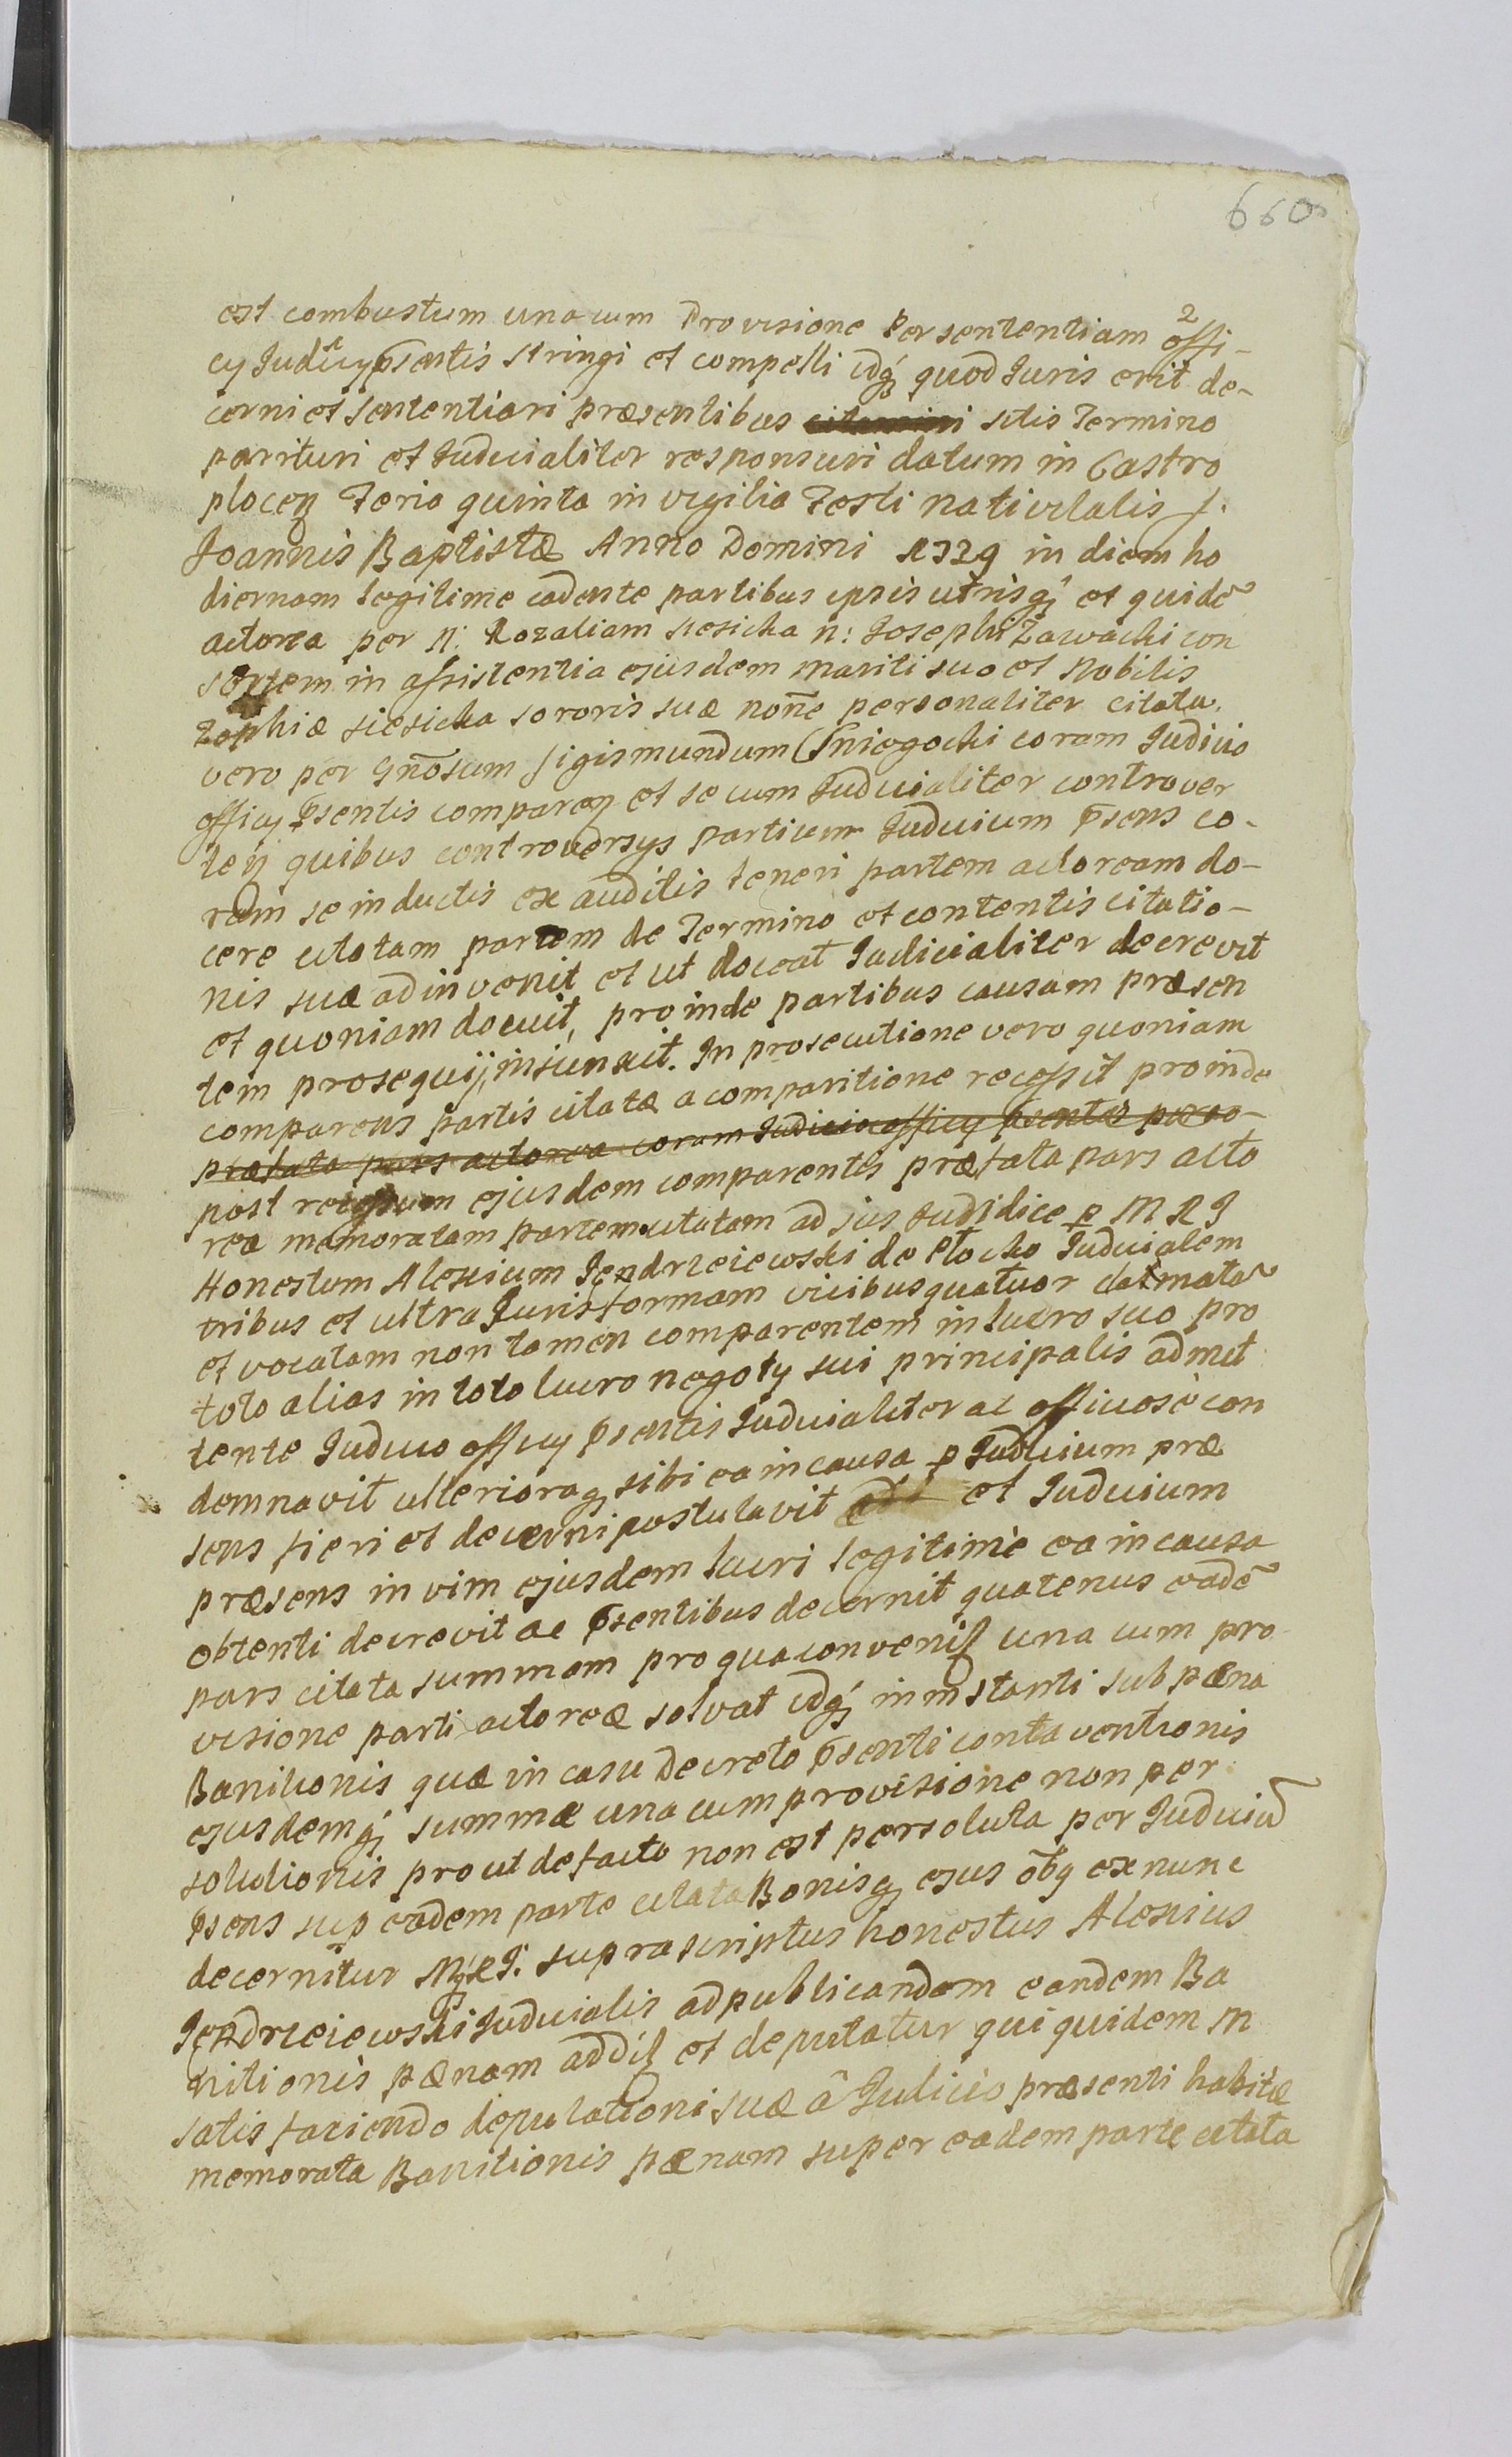 660
est combustum una cum Provisione Per sententiam offi-
cy Judicy p̃sentis stringi et compelli idq́ quod Juris erit de-
cerni et sententiari præsentibus sitis Termino
parituri et Judicialiter responsuri datum in Castro
plocen Feria quinta in vigilia Festi nativitatis s.
Joannis Baptistæ Anno Domini 1729 in diem ho
diernam legitime cadente partibus ipsis utrisq́ et quidẽ
actorea per N: Rozaliam siesicka n: Josephi Zawacki con
sortem in assistentia ejusdem mariti suo et Nobilis
Zophiæ siesicka sororis suæ noñe personaliter citata.
vero per Gñosum Sigismundum Sniegocki coram Judicio
officy p̃sentis comparen et se cum Judicialiter controver
ten quibus controversys partium Judicium p̃sens co-
ram se inductis ex auditis teneri partem actoream do-
cere citatam partem de Termino et contentis citatio-
nis suæ adinvenit et ut doceat Judicialiter decrevit
et quoniam docuit, proinde partibus causam præsen
tem prosequi, injunxit. In prosecutione vero quoniam
comparens partis citatæ a comparitione recessit proinde
præfata pars actorea coram Judicio officy p̃sentis
post recessum ejusdem comparentis præfata pars acto
rea memoratam partem citatam ad jus Judidice p M R J
Honestum Alexium Jendrzeiewski de Plocko Judicialem
tribus et ultra Juris formam vicibus quatuor clamatã
et vocatam non tamen comparentem in lucro suo pro
toto alias in toto lucro negoty sui principalis admit
tente Judicio officy p̃sentis Judicialiter ac officiosè con
demnavit ulterioraq sibi ea in causa p Judicium præ
sens fieri et decerni postulavit et Judicium
præsens in vim ejusdem lucri legitimè ea in causa
obtenti decrevit ac p̃sentibus decernit quatenus eadẽ
pars citata summam pro qua convenit una cum pro
visione parti actoreæ solvat idq́ in instanti sub pæna
Banitionis quæ in casu Decreto p̃senti contraventionis
ejusdemq́ summæ una cum provisione non per
solutionis prout de facto non est persoluta per Judiciũ
p̃sens sup eadem parte citata Bonisq ejus õbq ex nunc
decernitur suprascriptus honestus Alexius
Jendrzeiewski Judicialis ad publicandam eandem Ba
nitionis pænam addit et deputatur qui quidem M
satis faciendo deputationi suæ â Judicio præsenti habitæ
memorata Banitionis pænam super eadem parte citata